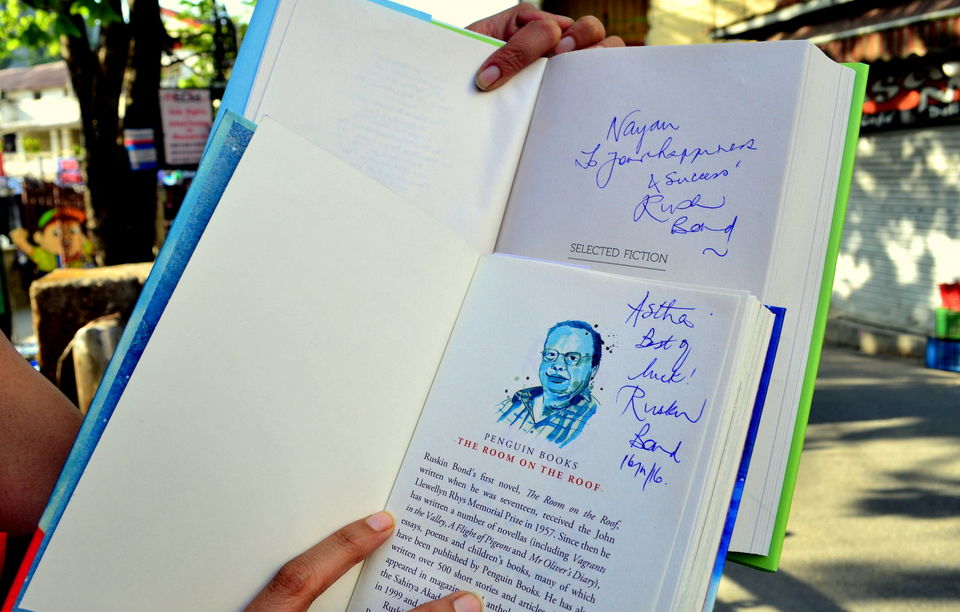 Nayan
To your happiness
& success!
Ruskin
Bond
SELECTED FICTION
Astha
Best of
luck!
Ruskin
Bond
PENGUIN BOOKS
THE ROOM ON THE ROOF
Ruskin Bond's first novel, The Room on the Roof,
written when he was seventeen, received the John
Llewellyn Rhys Memorial Prize in 1957. Since then he
has written a number of novellas (including Vagrants
in the Valley, A Flight of Pigeons and Mr Oliver's Diary),
essays, poems and children's books, many of which
have been published by Penguin Books. He has also
written over 500 short stories and articles
appeared in magazin
the Sahitya Akad
in 1999 and
Ruski